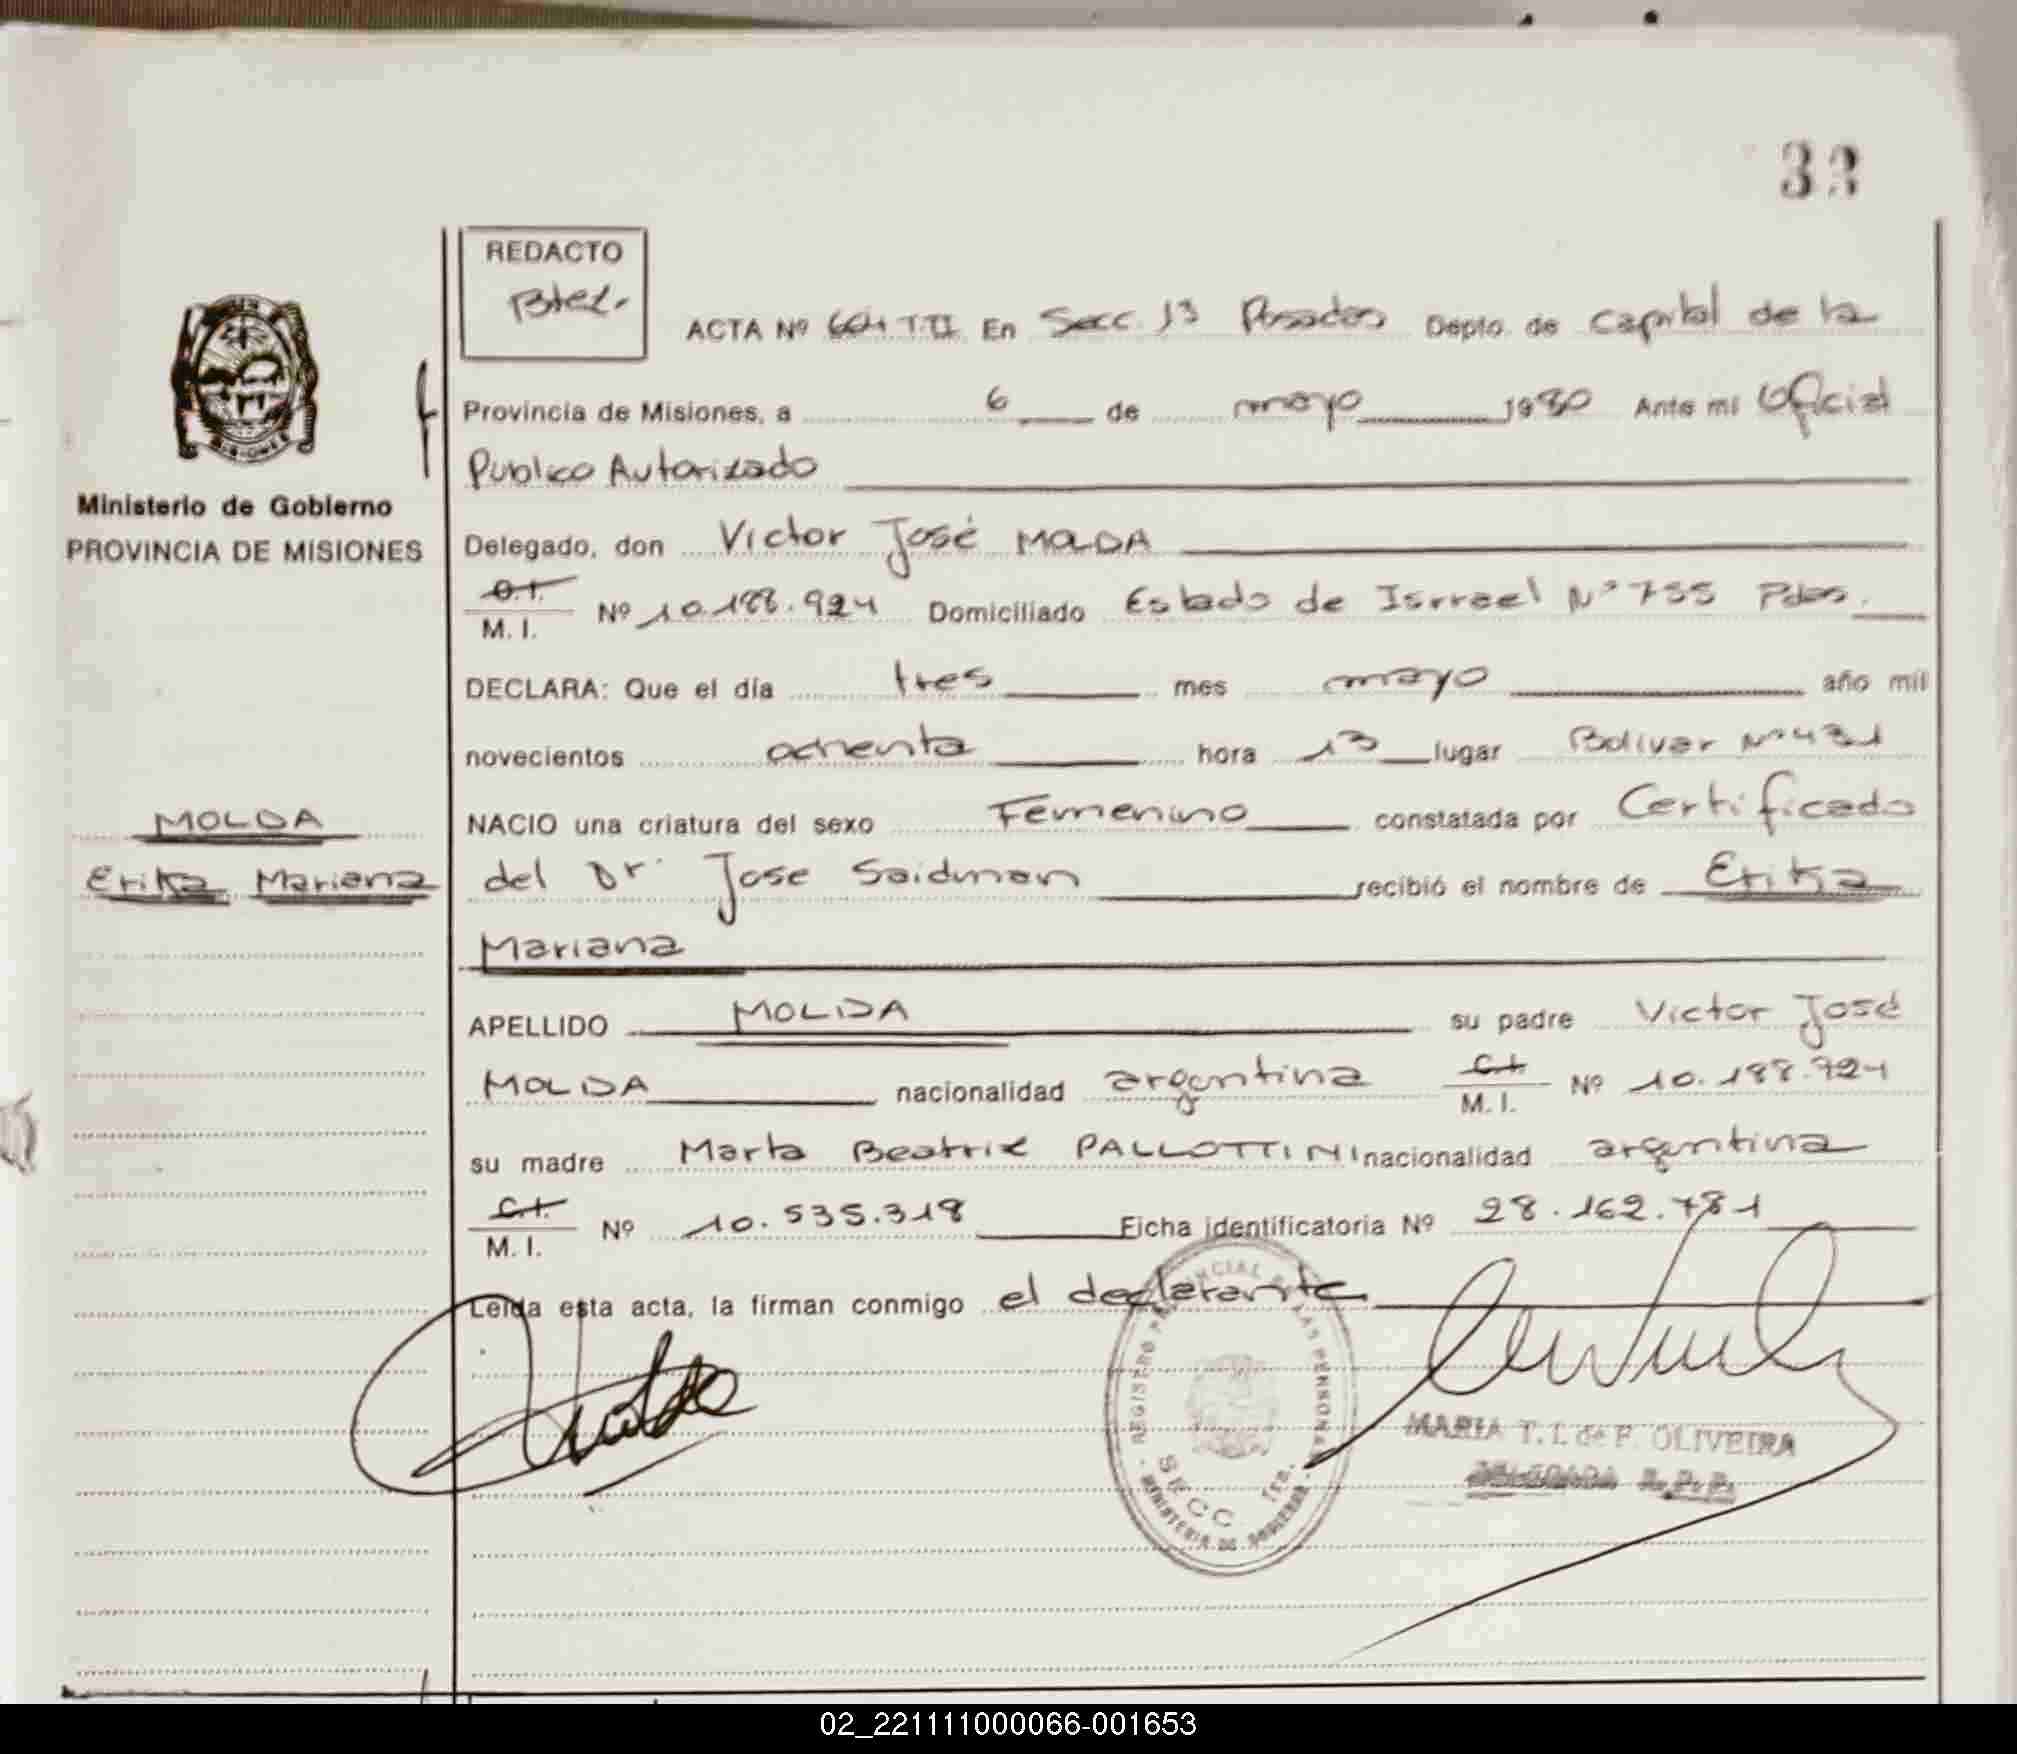 33
REDACTO
ACTA Nº 604 T.II En Secc. 13 Posadas Depto. de Capital de la
Provincia de Misiones, a 6 de mayo 1980 Ante mi Oficial
Publico Autorizado
Ministerio de Gobierno
PROVINCIA DE MISIONES
Delegado, don Victor José MOLDA
C.I.
M. I. Nº 10.188.924 Domiciliado Estado de Isrrael Nº 755 Pdas.
DECLARA: Que el día tres mes mayo año mil
novecientos ochenta hora 13 lugar Bolivar Nº 431
MOLDA
NACIO una criatura del sexo Femenino constatada por Certificado
Erika Mariana
del Dr. Jose Saidman recibió el nombre de Erika
Mariana
APELLIDO MOLDA su padre Victor José
MOLDA nacionalidad argentina C.I.
M. I. Nº 10.188.924
su madre Marta Beatriz PALLOTTINI nacionalidad argentina
C.I.
M. I. Nº 10.535.318 Ficha identificatoria Nº 28.162.781
Leída esta acta, la firman conmigo el declarante
REGISTRO PROVINCIAL DE LAS PERSONAS
SECC. 1ra.
MINISTERIO DE GOBIERNO
MARIA T. I. de F. OLIVEIRA
DELEGADA R.P.P.
02_221111000066-001653